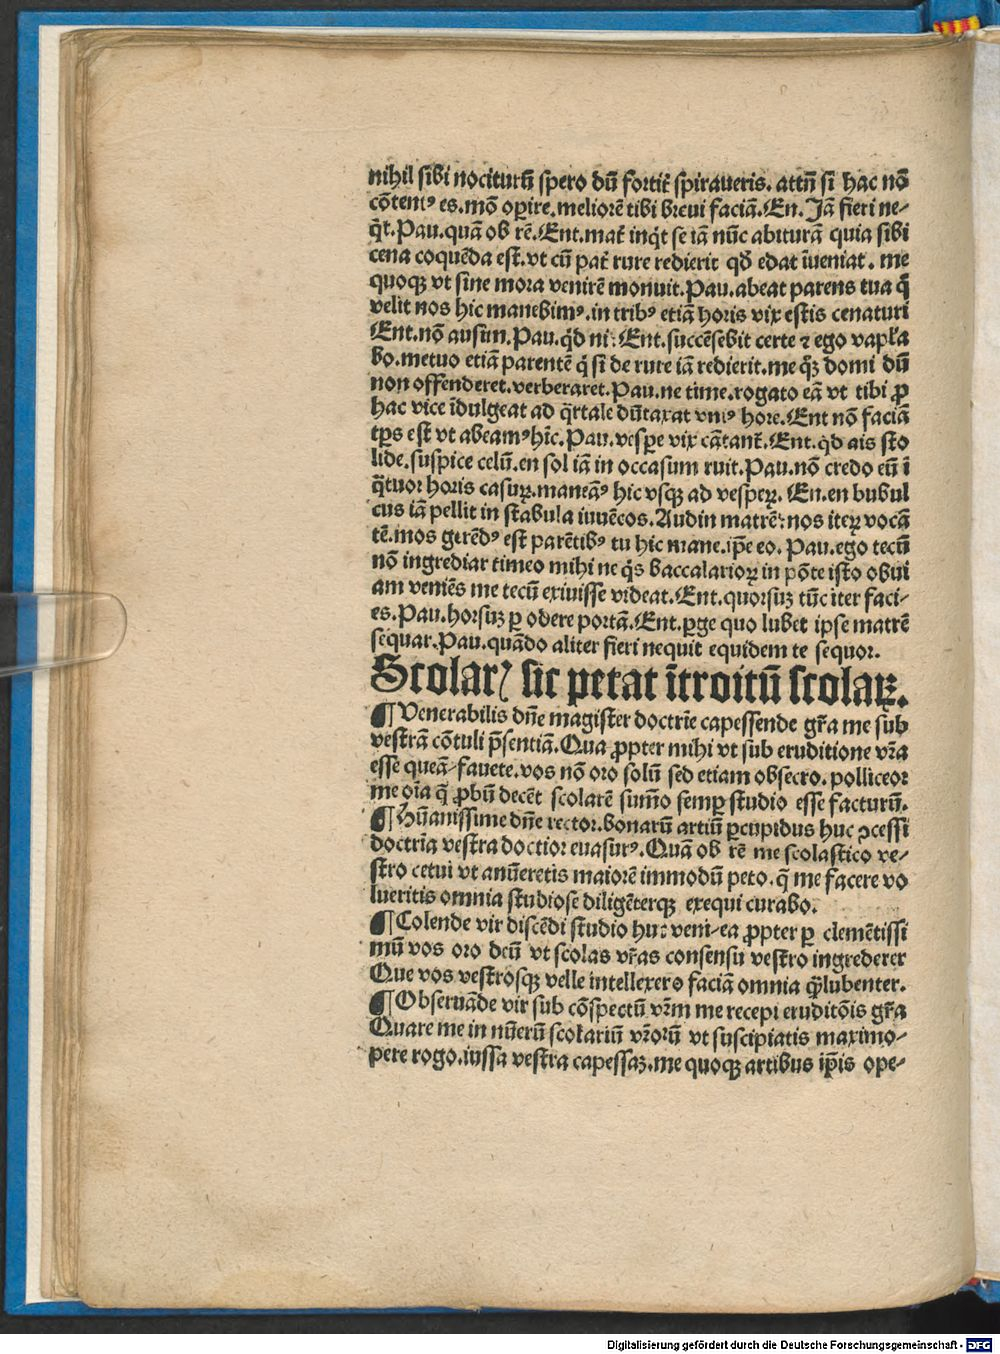 nihil sibi nociturū spero dū fortit̄ spiraueris. attn̄ si hac nō
cōtentꝰ es. mō operire. meliorē tibi breui faciā. En. Jā fieri ne-
q̄t. Pau. quā ob rē. Ent. mat̄ inq̇t se iā nūc abiturā quia sibi
cena coquēda est. vt cū pat̄ rure redierit qđ edat īueniat. me
quoqꝫ vt sine mora venirē monuit. Pau. abeat parens tua q̄
velit nos hic manebimꝰ. in tribꝰ etiā horis vix estis cenaturi
Ent. nō ausim. Pau. q̇d ni: Ent. succēsebit certe ⁊ ego vapła
bo. metuo etiā parentē q̇ si de rure iā redierit. me q̄ꝫ domi dū
non offenderet. verberaret. Pau. ne time. rogato eā vt tibi ꝓ
hac vice īdulgeat ad q̄rtale dūtaxat vniꝰ hore. Ent nō faciā
tꝑs est vt abeamꝰ hīc. Pau. vesꝑe vix cātant̄. Ent. q̇d ais sto
lide. suspice celū. en sol iā in occasum ruit. Pau. nō credo eū ī
q̄tuor horis casurꝝ. maneāꝰ hic vsqꝫ ad vesperꝝ. En. en bubul
cus iā pellit in stabula iuuēcos. Audin matrē: nos iterꝝ vocā
tē. mos gerēdꝰ est parētibꝰ tu hic mane. ip̄e eo. Pau. ego tecū
nō ingrediar timeo mihi ne q̇s baccalariorꝝ in pōte isto obui
am veniēs me tecū exiuisse videat. Ent. quorsuꝫ tūc iter faci-
es. Pau. horsuꝫ ꝑ odere portā. Ent. ꝑge quo lubet ipse matrē
sequar. Pau. quādo aliter fieri nequit equidem te sequor.
Scolarꝭ sic petat ītroitū scolaꝝ.
¶ Venerabilis dn̄e magister doctrīe capessende gr̄a me sub
vestrā cōtuli p̄sentiā. Qua ꝓpter mihi vt sub eruditione vr̄a
esse queā-fauete. vos nō oro solū sed etiam obsecro. polliceor
me oīa q̄ ꝓbū decēt scolarē sum̄o semꝑ studio esse facturū.
¶ Hūanissime dn̄e rector. bonarū artiū ꝑcupidus huc ꝯcessi
doctrīa vestra doctior euasurꝰ. Quā ob rē me scolastico ve-
stro cetui vt anūeretis maiorē immodū peto. q̄ me facere vo
lueritis omnia studiose diligēterqꝫ exequi curabo.
¶ Colende vir discēdi studio huc veni-ea ꝓpter ꝑ clemētissi
mū vos oro deū vt scolas vr̄as consensu vestro ingrederer
Que vos vestrosqꝫ velle intellexero faciā omnia q̄ꝫlubenter.
¶ Obseruāde vir sub cōspectū vr̄m me recepi eruditōis gr̄a
Quare me in nūerū scolariū vr̄orū vt suscipiatis maximo-
pere rogo. iussa vestra capessaꝫ. me quoqꝫ artibus ip̄is ope-
Digitalisierung gefördert durch die Deutsche Forschungsgemeinschaft - DFG